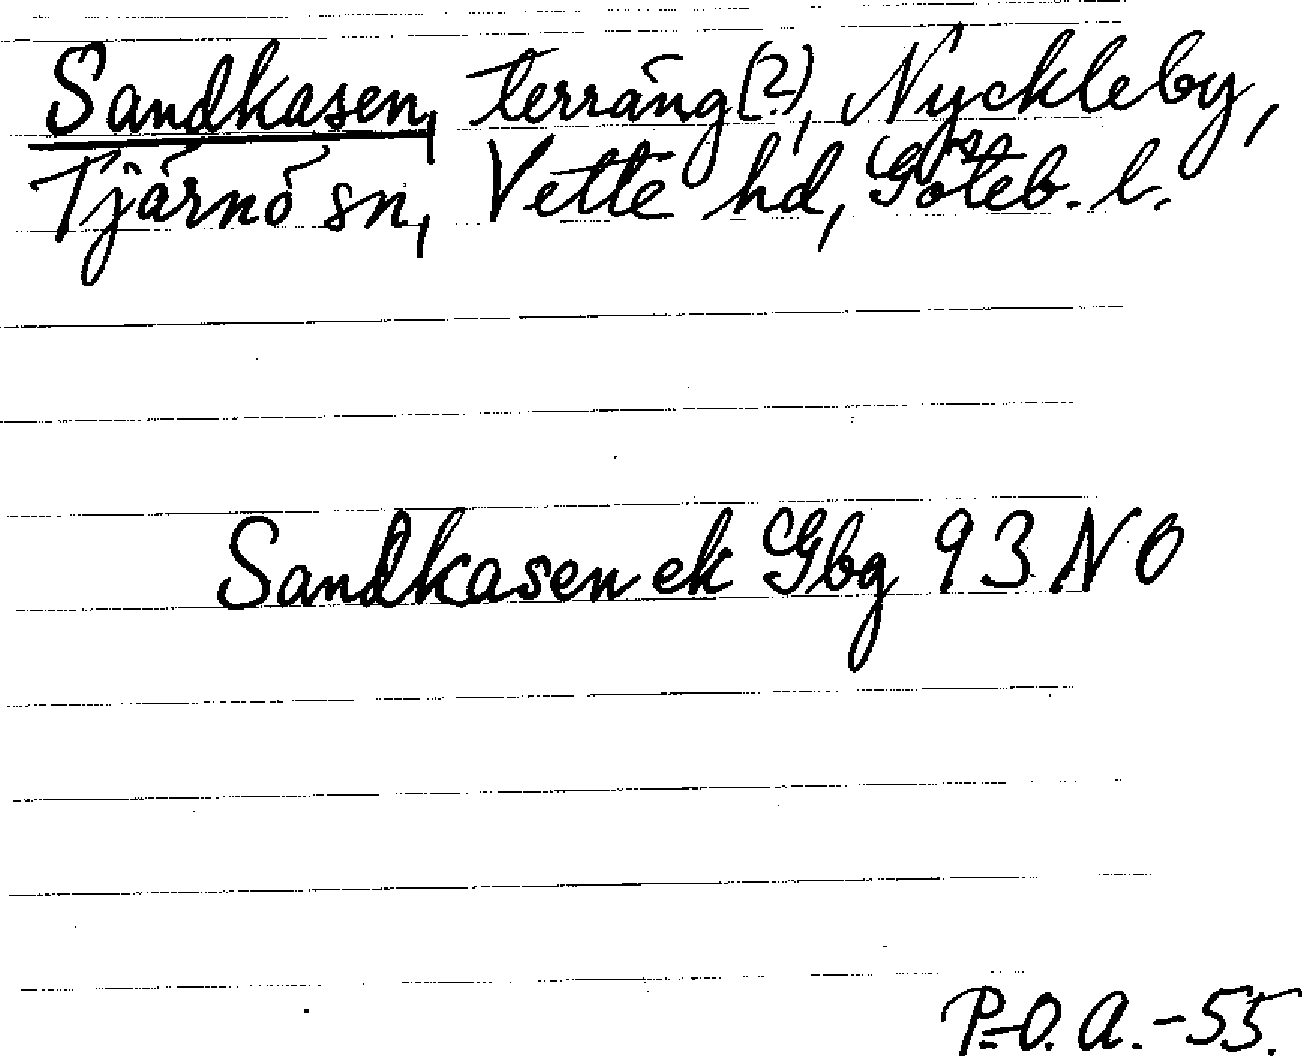 Sandkasen, terräng (?), Nyckleby,
Tjärnö sn, Vette hd, Göteb. l.
Sandkasen ek Gbg 93 NO
P-O. A. -55.